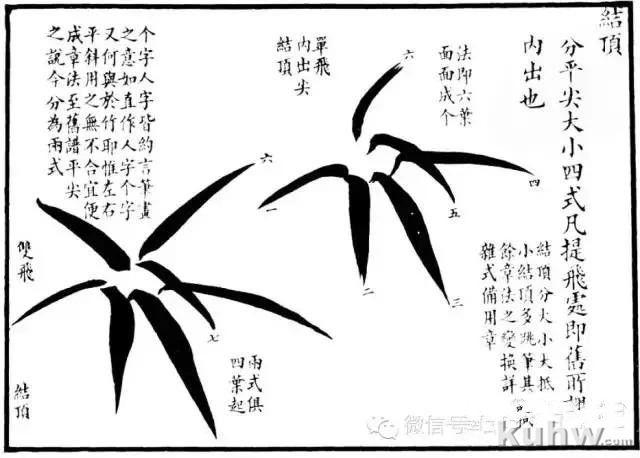 結頂
分平尖大小四式凡提飛處即舊所謂
內出也
結頂分大小大抵
小結頂多跳筆其
餘章法之變換詳
雜式備用章
法即六葉
面面成个
單飛
內出尖
結頂
六
四
五
三
二
一
个字人字皆約言筆畫
之意如直作人字个字
又何與於竹耶惟左右
平斜用之無不合宜便
成章法至舊譜平尖
之說今分為兩式
六
七
雙飛
結頂
兩式俱
四葉起
微信号
kuhw.com